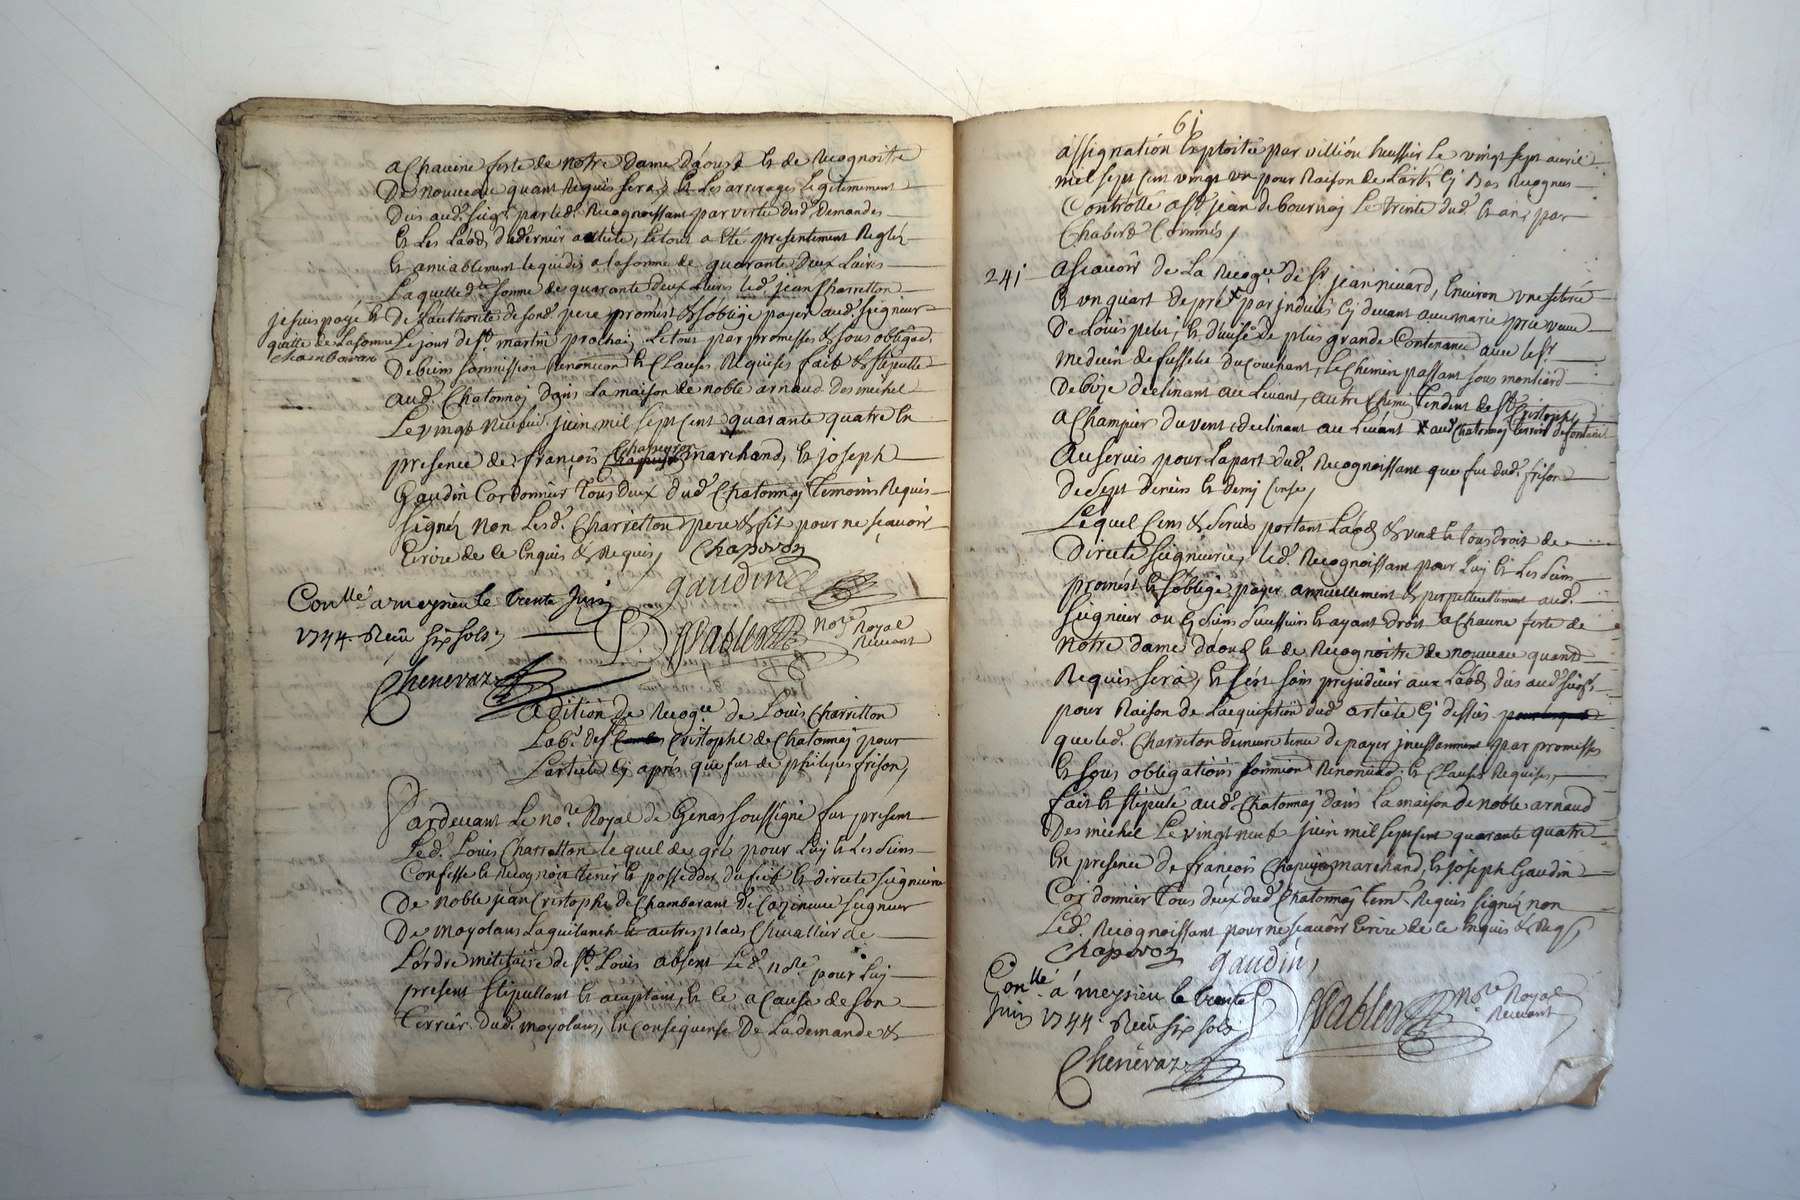 a Chacune feste de notre dame daoust et de Recognoitre
De nouveau quant Requis sera, et Les arrerages Legitimement
Dus aud. seigr. par led. Recognoissant par vertu desd. Demandes
et Les Laods dud. dernier article, le tout a êté presentement Reglés
et amiablement liquidés a la somme de quarante deux Livres
Laquelle de. somme de quarante deux Livres led. jean Charretton
De L'authorité de son d. pere promést et s'oblige payer aud. seigneur
Le jour de st. martin prochain, Le tout par promesses et sous obligaõn
De biens soumission Renonciaon et Clauses Requises fait et stipullé
aud. Chatonnay Dans La maison de noble arnaud Des michel
Le vingt neuf juin mil sept Cent quarante quatre En
presence de françois Chapuron marchand, et joseph
Gaudin Cordonnier Tous deux dud. Chatonnay Temoins Requis
signés non Lesd. Charretton pere et fils pour ne sçavoir
Ecrire de ce Enquis et Requis, Chaporon
je suis payé et
quitte de La somme
Chambaran
gaudin
Conllé. a meysieu le trente Juin
1744. Reçu six sols,
Nore. Royal
Recevant
Chenevaz
adition de Recogce. de Louis Charretton
Labr. de st. Cristophe de Chatonnay pour
L'article Cy après, que fut de philipes frison,
Pardevant Le nore. Royal de Genas soussigné fut present
Led. Louis Charretton lequel de gré pour Luy et Les siens
Confesse et Recognoit tenir et possedder du fief et directe seigneurie
De noble jean Cristophe de Chambarant De Cazineuve seigneur
De moyolans Laquilanche et autres places Chevallier de
L'ordre militaire de st. Louis absent Le d. nore. pour Luy
present stipullant et acceptant, et Ce a Cause de son
Terrier dud. moyolans, En Consequense De La demande et
61
assignation Exploitée par villion huissier Le vingt sept avril
mil sept Cent vingt un pour Raison de L'art. Cy Bas Recognus
Contrôllé a st. jean de bournay Le trente dud. et an, par
Chabert Commis,
241 ascavoir de La Recogce. de sr. jean nivard, Environ une seterée
et un quart de pré x par indivis Cy devant avec marie prie veuve
De Louis petit et divisé de plus grande Contenance avec le sr.
medecin de fusselet du Couchant, Le Chemin passant sous montiard
De bize declinant au Levant, autre Chemin Tendent de st. Cristophe
a Champier du vent declinant au Levant x aud. Chatonnay terroir de fontanil
Au servis pour La part dud. Recognoissant que fut dud. frison
De sept deniers et demy Cense,
Lequel Cens et servis portant Laods et vends et tous droit de
Directe seigneurie, led. Recognoissant pour Luy et Les siens
promést et s'oblige payer annuellement et perpetuellement aud.
seigneur ou Es siens successeurs et ayant droit a Chacune feste de
notre dame daoust et de Recognoitre de nouveau quant
Requis sera, et c'est sans prejudicier aux Laods dus aud. seigr.
pour Raison de L'acquisition dud. article Cy dessus
que led. Charreton demeure tenu de payer incessamment par promesses
et sous obligations soumision Renonciaõn et Clauses Requises,
fait et stipulé aud. Chatonnay dans La maison de noble arnaud
Des michel Le vingt neuf juin mil sept Cent quarante quatre
En presence de françois Chapuron marchand, et joseph Gaudin
Cordonnier Tous deux dud. Chatonnay tem. Requis signés non
Led. Recognoissant pour ne sçavoir Ecrire de ce Enquis et Req.
Chaporon gaudin,
Conllé. á meysieu le trente
Juin 1744. Reçu six sols
Nore. Royal
Recevant
Chenevaz